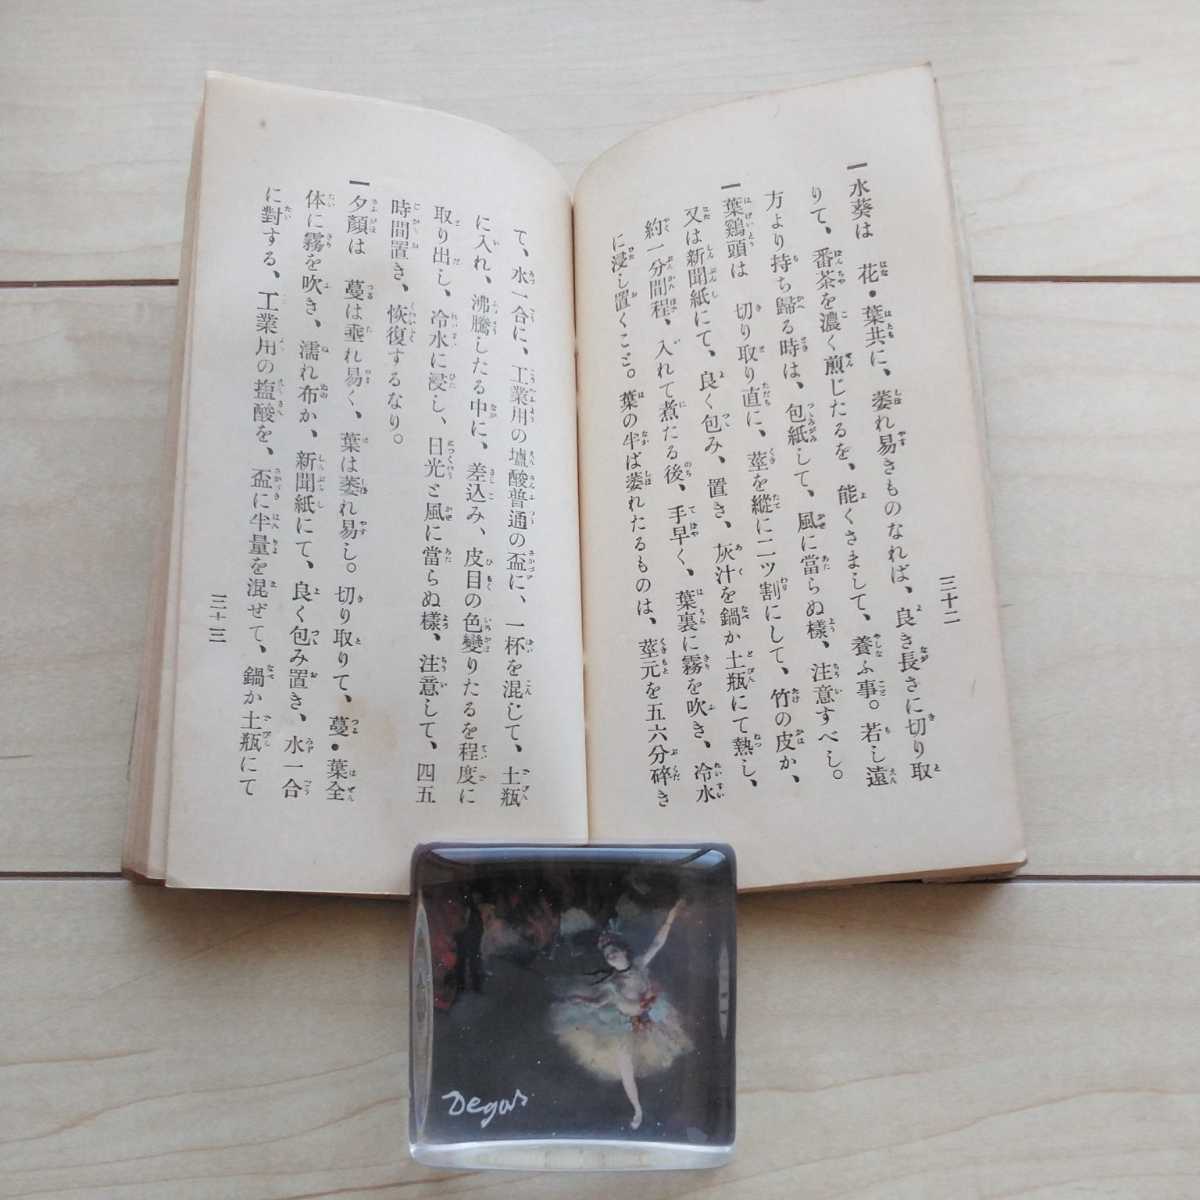 一水葵は 花・葉共に、萎れ易きものなれば、良き長さに切り取
りて、番茶を濃く煎じたるを、能くさまして、養ふ事。若し遠
方より持ち歸る時は、包紙して、風に當らぬ樣、注意すべし。
一葉鶏頭は 切り取り直に、莖を縱に二ツ割にして、竹の皮か、
又は新聞紙にて、良く包み、置き、灰汁を鍋か土瓶にて熱し、
約一分間程、入れて煮たる後、手早く、葉裏に霧を吹き、冷水
に浸し置くこと。葉の半ば萎れたるものは、莖元を五六分碎き
三十二
て、水一合に、工業用の塩酸普通の盃に、一杯を混じて、土瓶
に入れ、沸騰したる中に、差込み、皮目の色變りたるを程度に
取り出し、冷水に浸し、日光と風に當らぬ樣、注意して、四五
時間置き、恢復するなり。
一夕顏は 蔓は垂れ易く、葉は萎れ易し。切り取りて、蔓・葉全
体に霧を吹き、濡れ布か、新聞紙にて、良く包み置き、水一合
に對する、工業用の塩酸を、盃に半量を混ぜて、鍋か土瓶にて
三十三
Degas